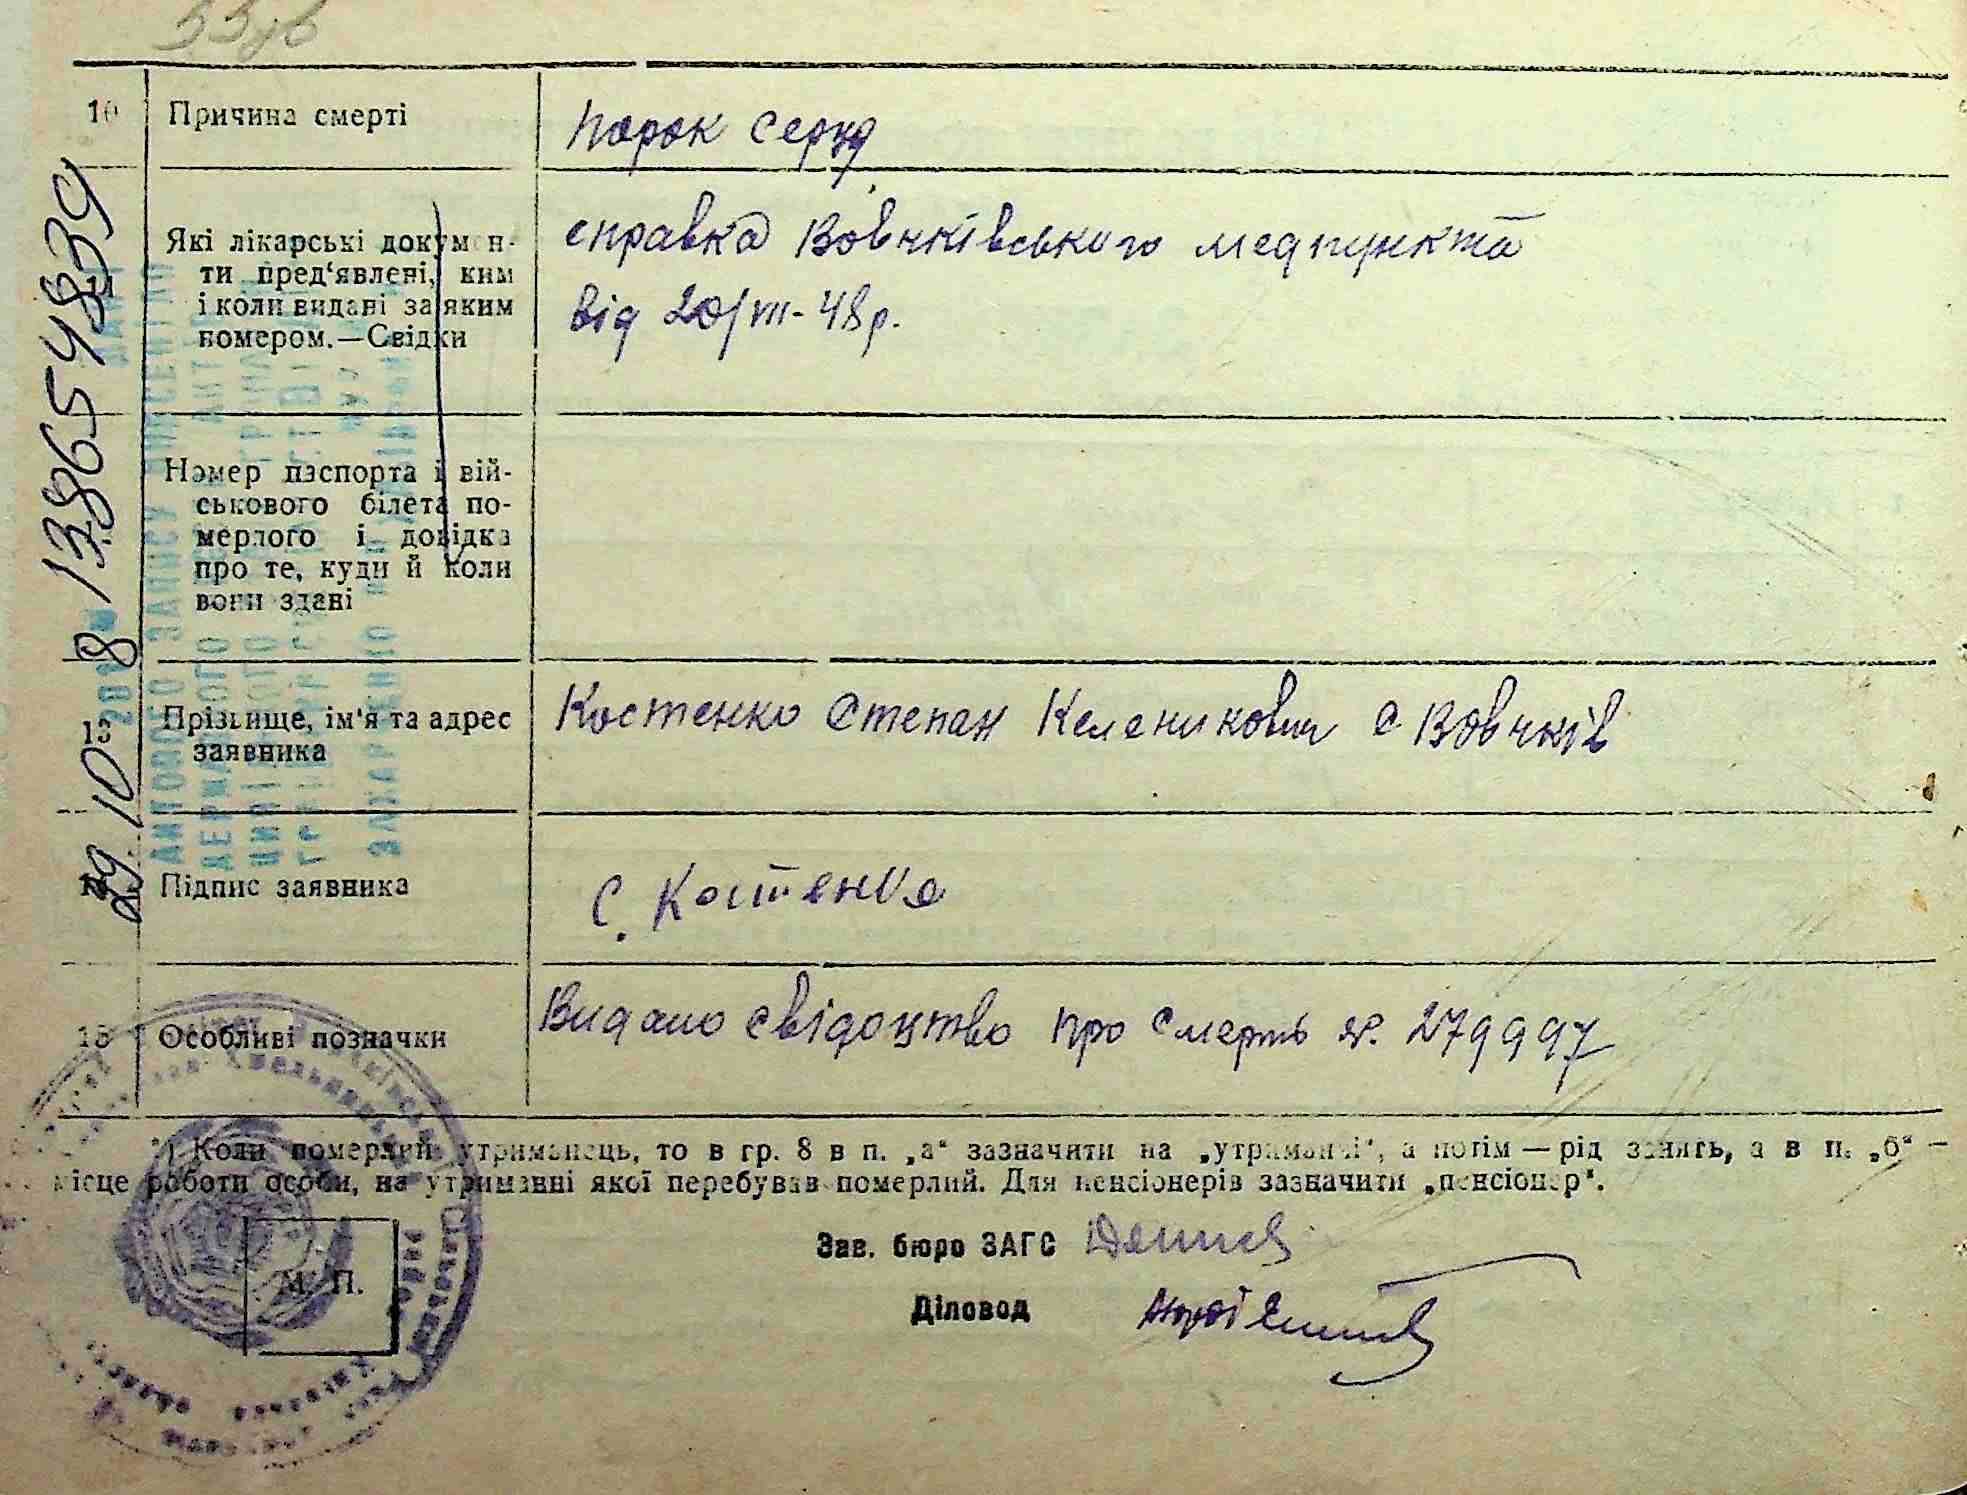 10
Причина смерті
порок серця
Які лікарські докумен-
ти пред'явлені, ким
і коли видані за яким
номером.—Свідки
справка Вовчківського медпункта
від 20/VII-48р.
Номер паспорта і вій-
ськового білета по-
мерлого і довідка
про те, куди й коли
вони здані
13
Прізвище, ім'я та адрес
заявника
Костенко Степан Келеникович с Вовчків
Підпис заявника
С. Костенко
15
Особливі позначки
Видано свідоцтво про смерть №. 279997
*) Коли померлий утриманець, то в гр. 8 в п. „а“ зазначити на „утриманні“, а потім — рід занять, а в п. „б“ —
місце роботи особи, на утриманні якої перебував померлий. Для пенсіонерів зазначити „пенсіонер“.
Зав. бюро ЗАГС
М. П.
Діловод
29 10 8 138654839